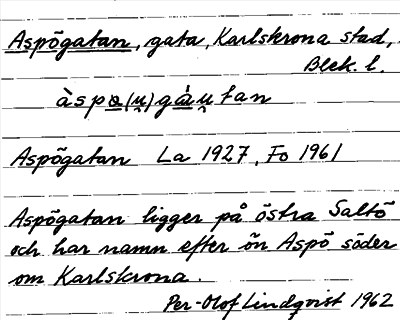 Aspögatan, gata, Karlskrona stad,
Blek. l.
àspo̲(u̯)gá̲u̯tan
Aspögatan La 1927, Fo 1961
Aspögatan ligger på östra Saltö
och har namn efter ön Aspö söder
om Karlskrona.
Per-Olof Lindqvist 1962